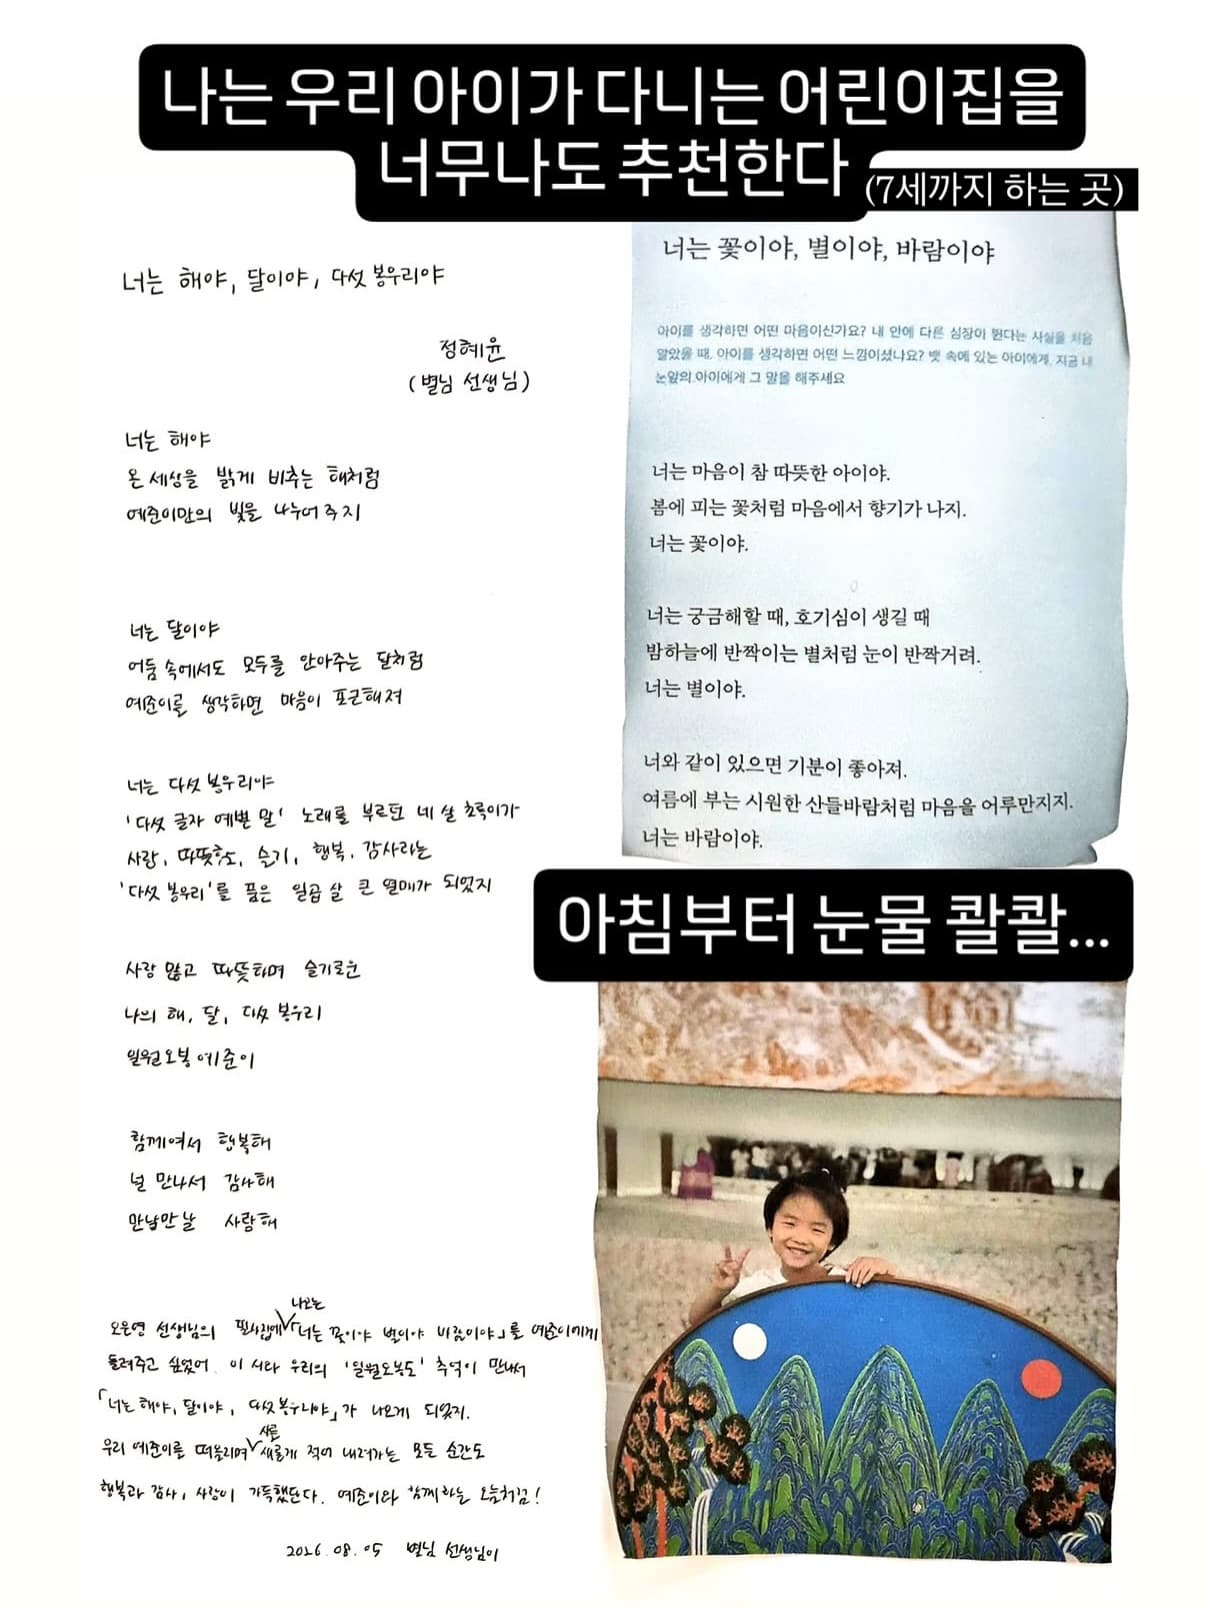 나는 우리 아이가 다니는 어린이집을
너무나도 추천한다
(7세까지 하는 곳)
너는 해야, 달이야, 다섯 봉우리야
정혜윤
(별님 선생님)
너는 해야
온 세상을 밝게 비추는 해처럼
예준이만의 빛을 나누어 주지
너는 달이야
어둠 속에서도 모두를 안아주는 달처럼
예준이를 생각하면 마음이 포근해져
너는 다섯 봉우리야
'다섯 글자 예쁜 말' 노래를 부르던 네 살 초록이가
사랑, 따뜻함, 슬기, 행복, 감사라는
'다섯 봉우리'를 품은 일곱 살 큰 열매가 되었지
사랑 많고 따뜻하며 슬기로운
나의 해, 달, 다섯 봉우리
일월오봉 예준이
함께여서 행복해
널 만나서 감사해
만날만날 사랑해
오은영 선생님의 필사집에 나오는 「너는 꽃이야 별이야 바람이야」를 예준이에게
들려주고 싶었어. 이 시와 우리의 '일월오봉도' 추억이 만나서
「너는 해야, 달이야, 다섯봉우리야」가 나오게 되었지.
우리 예준이를 떠올리며 새롭게 적어 내려가는 모든 순간도
행복과 감사, 사랑이 가득했단다. 예준이와 함께하는 오늘처럼!
2026.08.05 별님 선생님이
너는 꽃이야, 별이야, 바람이야
아이를 생각하면 어떤 마음이신가요? 내 안에 다른 심장이 뛴다는 사실을 처음
알았을 때, 아이를 생각하면 어떤 느낌이셨나요? 뱃 속에 있는 아이에게, 지금 내
눈앞의 아이에게 그 말을 해주세요
너는 마음이 참 따뜻한 아이야.
봄에 피는 꽃처럼 마음에서 향기가 나지.
너는 꽃이야.
너는 궁금해할 때, 호기심이 생길 때
밤하늘에 반짝이는 별처럼 눈이 반짝거려.
너는 별이야.
너와 같이 있으면 기분이 좋아져.
여름에 부는 시원한 산들바람처럼 마음을 어루만지지.
너는 바람이야.
아침부터 눈물 콸콸...